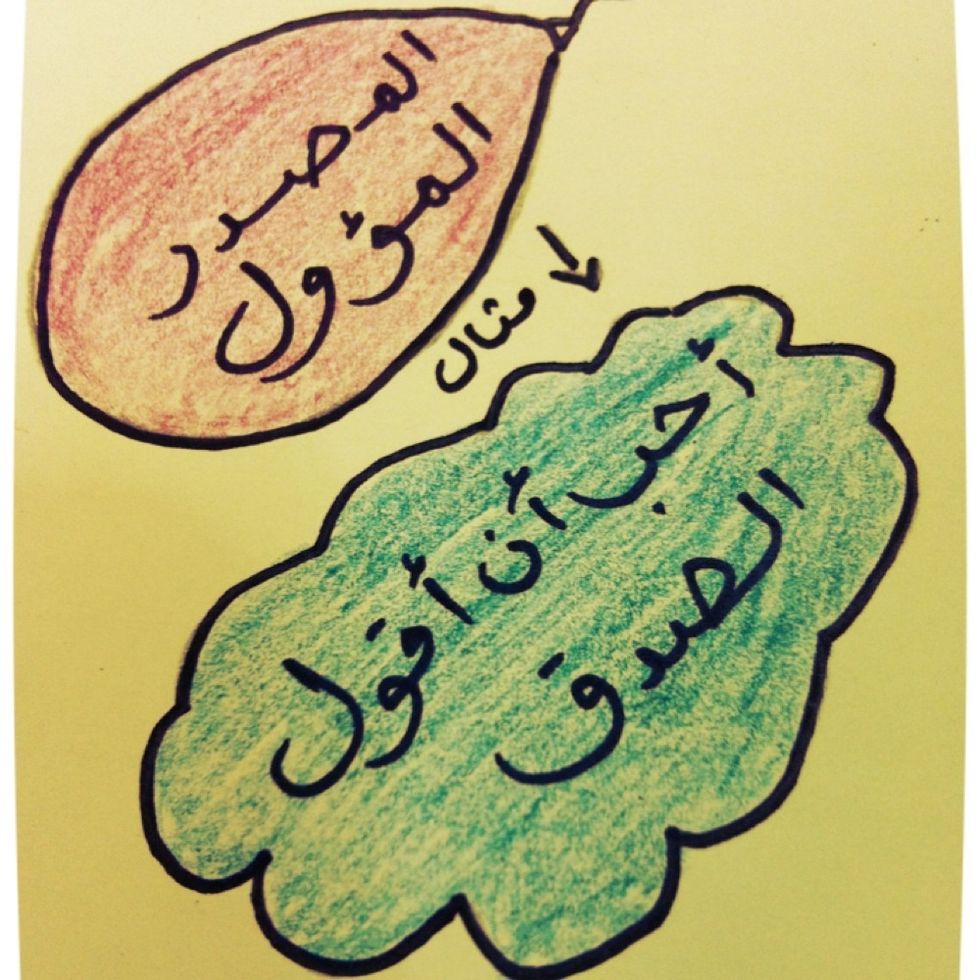 المصدر
المؤول
مثال
أحب أن أقول
الصدق